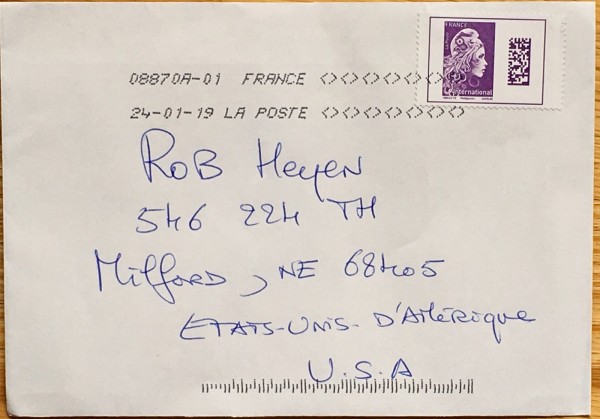 FRANCE
international
08870A-01 FRANCE <><><><><><><>
24-01-19 LA POSTE <><><><><><><>
Rob Heyen
546 224 TH
Milford, NE 68405
Etats-Unis-D'Amérique
U.S.A